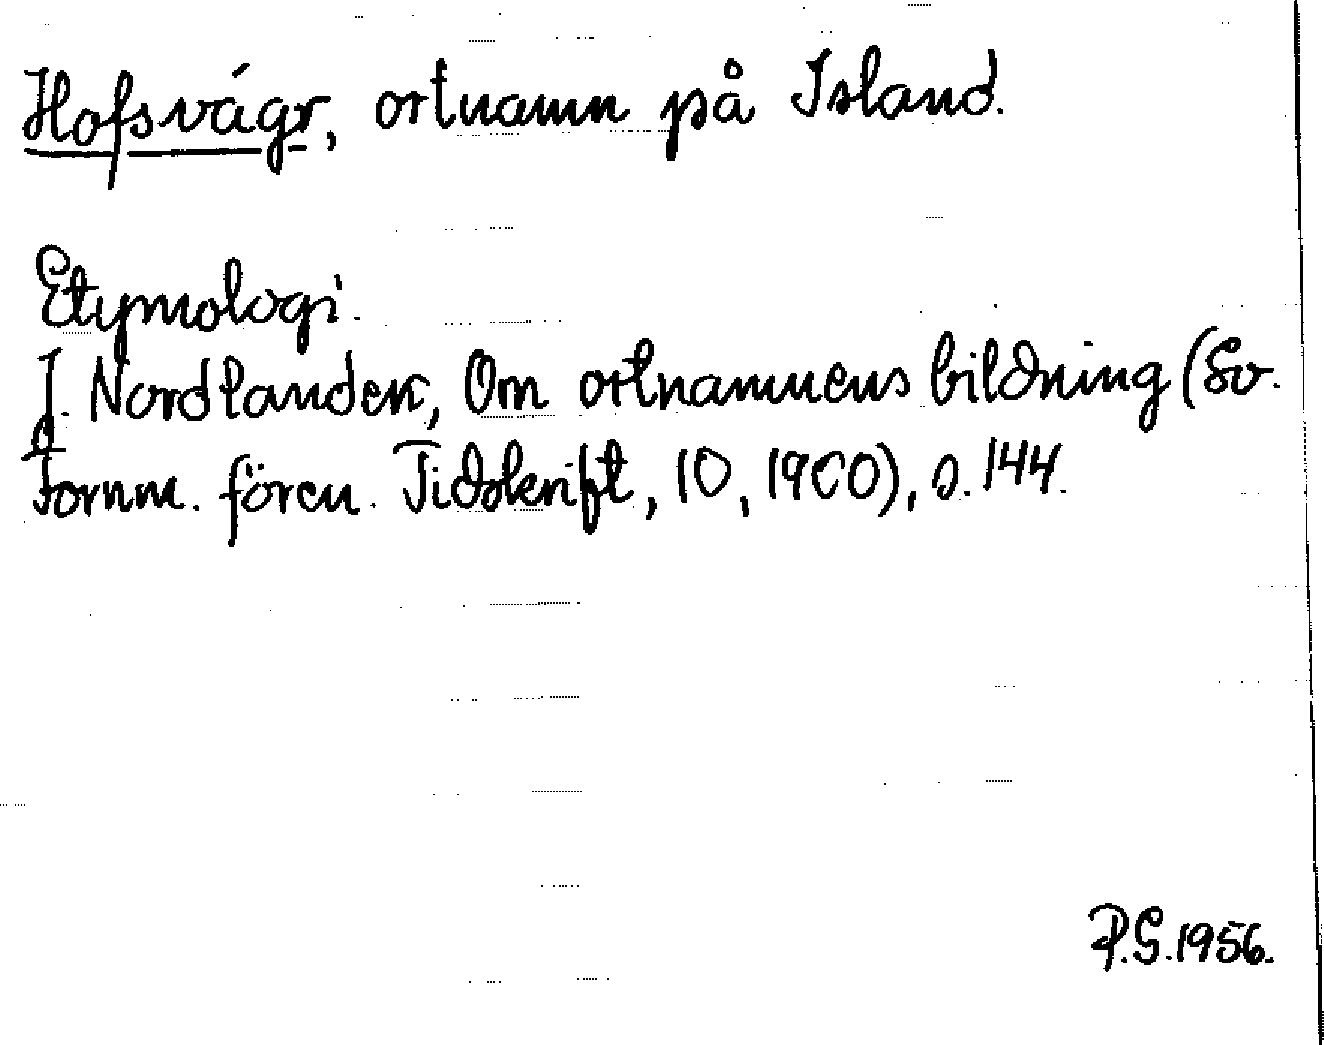 Hofsvágr, ortnamn på Island.
Etymologi.
J. Nordlander, Om ortnamnens bildning (Sv.
Fornm. fören. Tidskrift, 10, 1900), s. 144.
P.G. 1956.